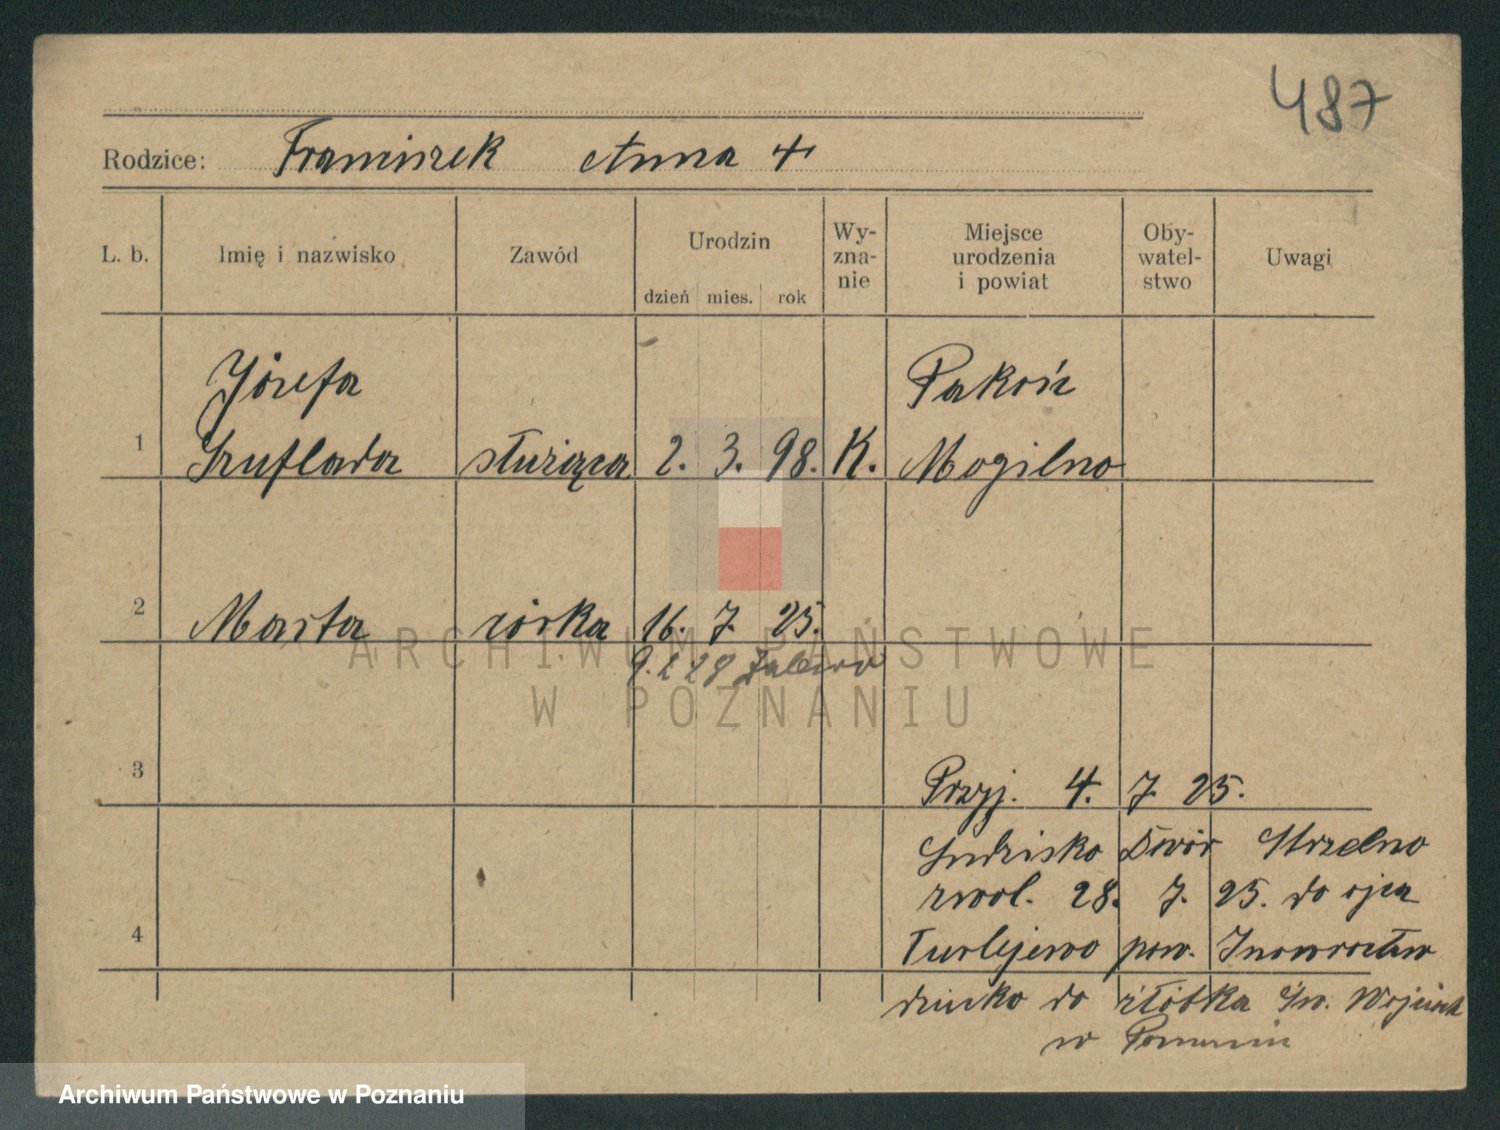 487
Rodzice: Franciszek Anna +
L. b. Imię i nazwisko Zawód Urodzin dzień mies. rok Wy-zna-nie Miejsce urodzenia i powiat Oby-watel-stwo Uwagi
Józefa Pakość
1 Szuflada służąca 2. 3. 98. K. Mogilno
2 Marta córka 16. 7. 25.
9. 2 28
3 Przyj. 4. 7. 25.
Sędzisko Dwór Strzelno
zwol. 28. 7. 25. do ojca
4 Turlejewo pow. Inowrocław
dziecko do żłóbka Św. Wojciecha
w Poznaniu
ARCHIWUM PAŃSTWOWE
W POZNANIU
Archiwum Państwowe w Poznaniu